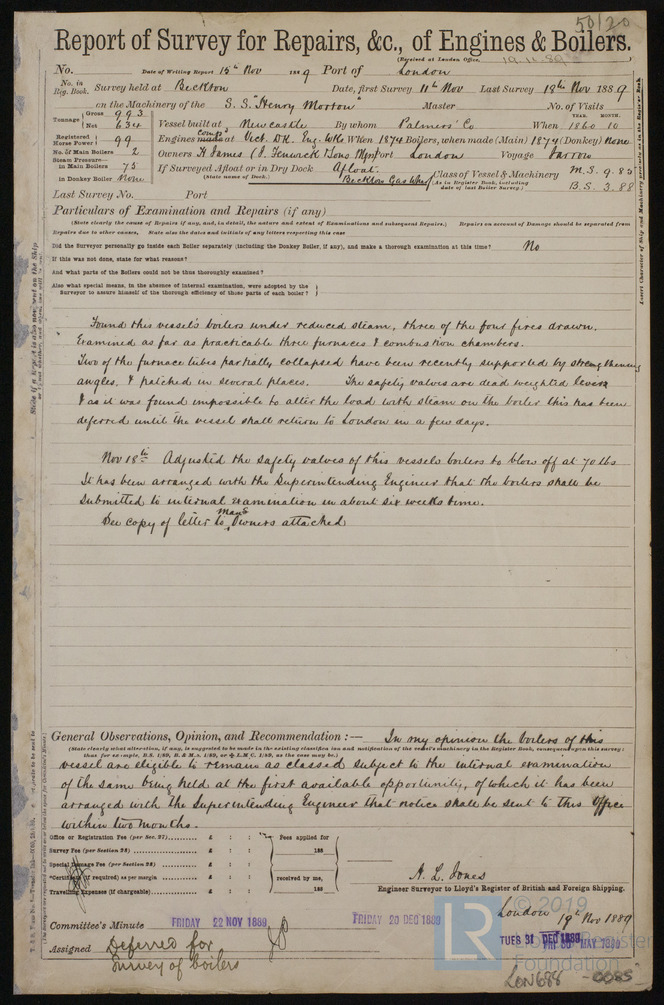 50/20
Report of Survey for Repairs, &c., of Engines & Boilers.
(Received at London Office, 19.11.89)
No. Date of Writing Report 15th Nov 1889 Port of London
No. in Reg. Book. Survey held at Beckton Date, first Survey 11th Nov Last Survey 18th Nov 1889
on the Machinery of the S.S. "Henry Morton" Master No. of Visits
Tonnage Gross 993 Net 634 Vessel built at Newcastle By whom Palmers' Co When 1860 10 YEAR. MONTH.
Registered Horse Power 99 Engines made at Vict. Dk. Eng. Wks When 1874 Boilers, when made (Main) 1874 (Donkey) none
No. of Main Boilers 2 Owners H James (J. Fenwick & Sons Port London Voyage
Steam Pressure— in Main Boilers 75 If Surveyed Afloat or in Dry Dock Afloat Class of Vessel & Machinery M.S. 9.85
in Donkey Boiler None (State name of Dock.) Beckton Gas Wharf (As in Register Book, including date of last Boiler Survey.) B.S. 3.88
Last Survey No. Port
Particulars of Examination and Repairs (if any)
(State clearly the cause of Repairs if any, and, in detail, the nature and extent of Examinations and subsequent Repairs.) Repairs on account of Damage should be separated from
Repairs due to other causes, State also the dates and initials of any letters respecting this case
Did the Surveyor personally go inside each Boiler separately (including the Donkey Boiler, if any), and make a thorough examination at this time? No
If this was not done, state for what reasons?
And what parts of the Boilers could not be thus thoroughly examined?
Also what special means, in the absence of internal examination, were adopted by the
Surveyor to assure himself of the thorough efficiency of those parts of each boiler?
Found this vessel's boilers under reduced steam, three of the four fires drawn.
Examined as far as practicable three furnaces & combustion chambers.
Two of the furnace tubes partially collapsed have been recently supported by strengthening
angles, & patched in several places. The safety valves are dead weighted levers
& as it was found impossible to alter the load with steam on the boiler this has been
deferred until the vessel shall return to London in a few days.
Nov 18th Adjusted the safety valves of this vessels boilers to blow off at 70 lbs
It has been arranged with the Superintending Engineer that the boilers shall be
submitted to internal examination in about six weeks time.
See copy of letter to Owners attached
General Observations, Opinion, and Recommendation :— In my opinion the boilers of this
(State clearly what alteration, if any, is suggested to be made in the existing classification and notification of the vessel's machinery in the Register Book, consequent upon this survey;
thus for example, B.S. 1/89, B. & M.s. 1/89, or L.M.C. 1/89, as the case may be.)
vessel are eligible to remain as classed subject to the internal examination
of the same being held at the first available opportunity, of which it has been
arranged with the Superintending Engineer that notice shall be sent to this Office
within two months.
Office or Registration Fee (per Sec. 27) £ : : Fees applied for
Survey Fee (per Section 28) £ : : 188
Special Damage Fee (per Section 28) £ : :
Certificate (if required) as per margin £ : : received by me,
Travelling Expenses (if chargeable) £ : : 188
A. L. Jones
Engineer Surveyor to Lloyd's Register of British and Foreign Shipping.
London 19th Nov 1889
© 2019
Committee's Minute FRIDAY 22 NOV 1889 FRIDAY 20 DEC 1889 TUES 31 DEC 1889
LR Lloyd's Register Foundation
Assigned Deferred for
Survey of boilers
LON688 -0085